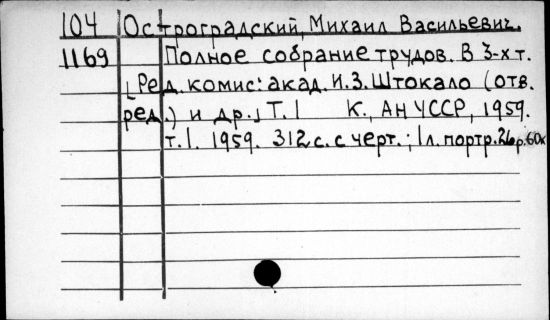 104 Остроградский, Михаил Васильевич.
1169 Полное собрание трудов. В 3-х т.
[Ред. комис: акад. И.З. Штокало (отв.
ред.) и др.] Т. 1 К., АН УССР, 1959.
т. 1. 1959. 312 с. с черт.; 1 л. портр. 26 р. 60к